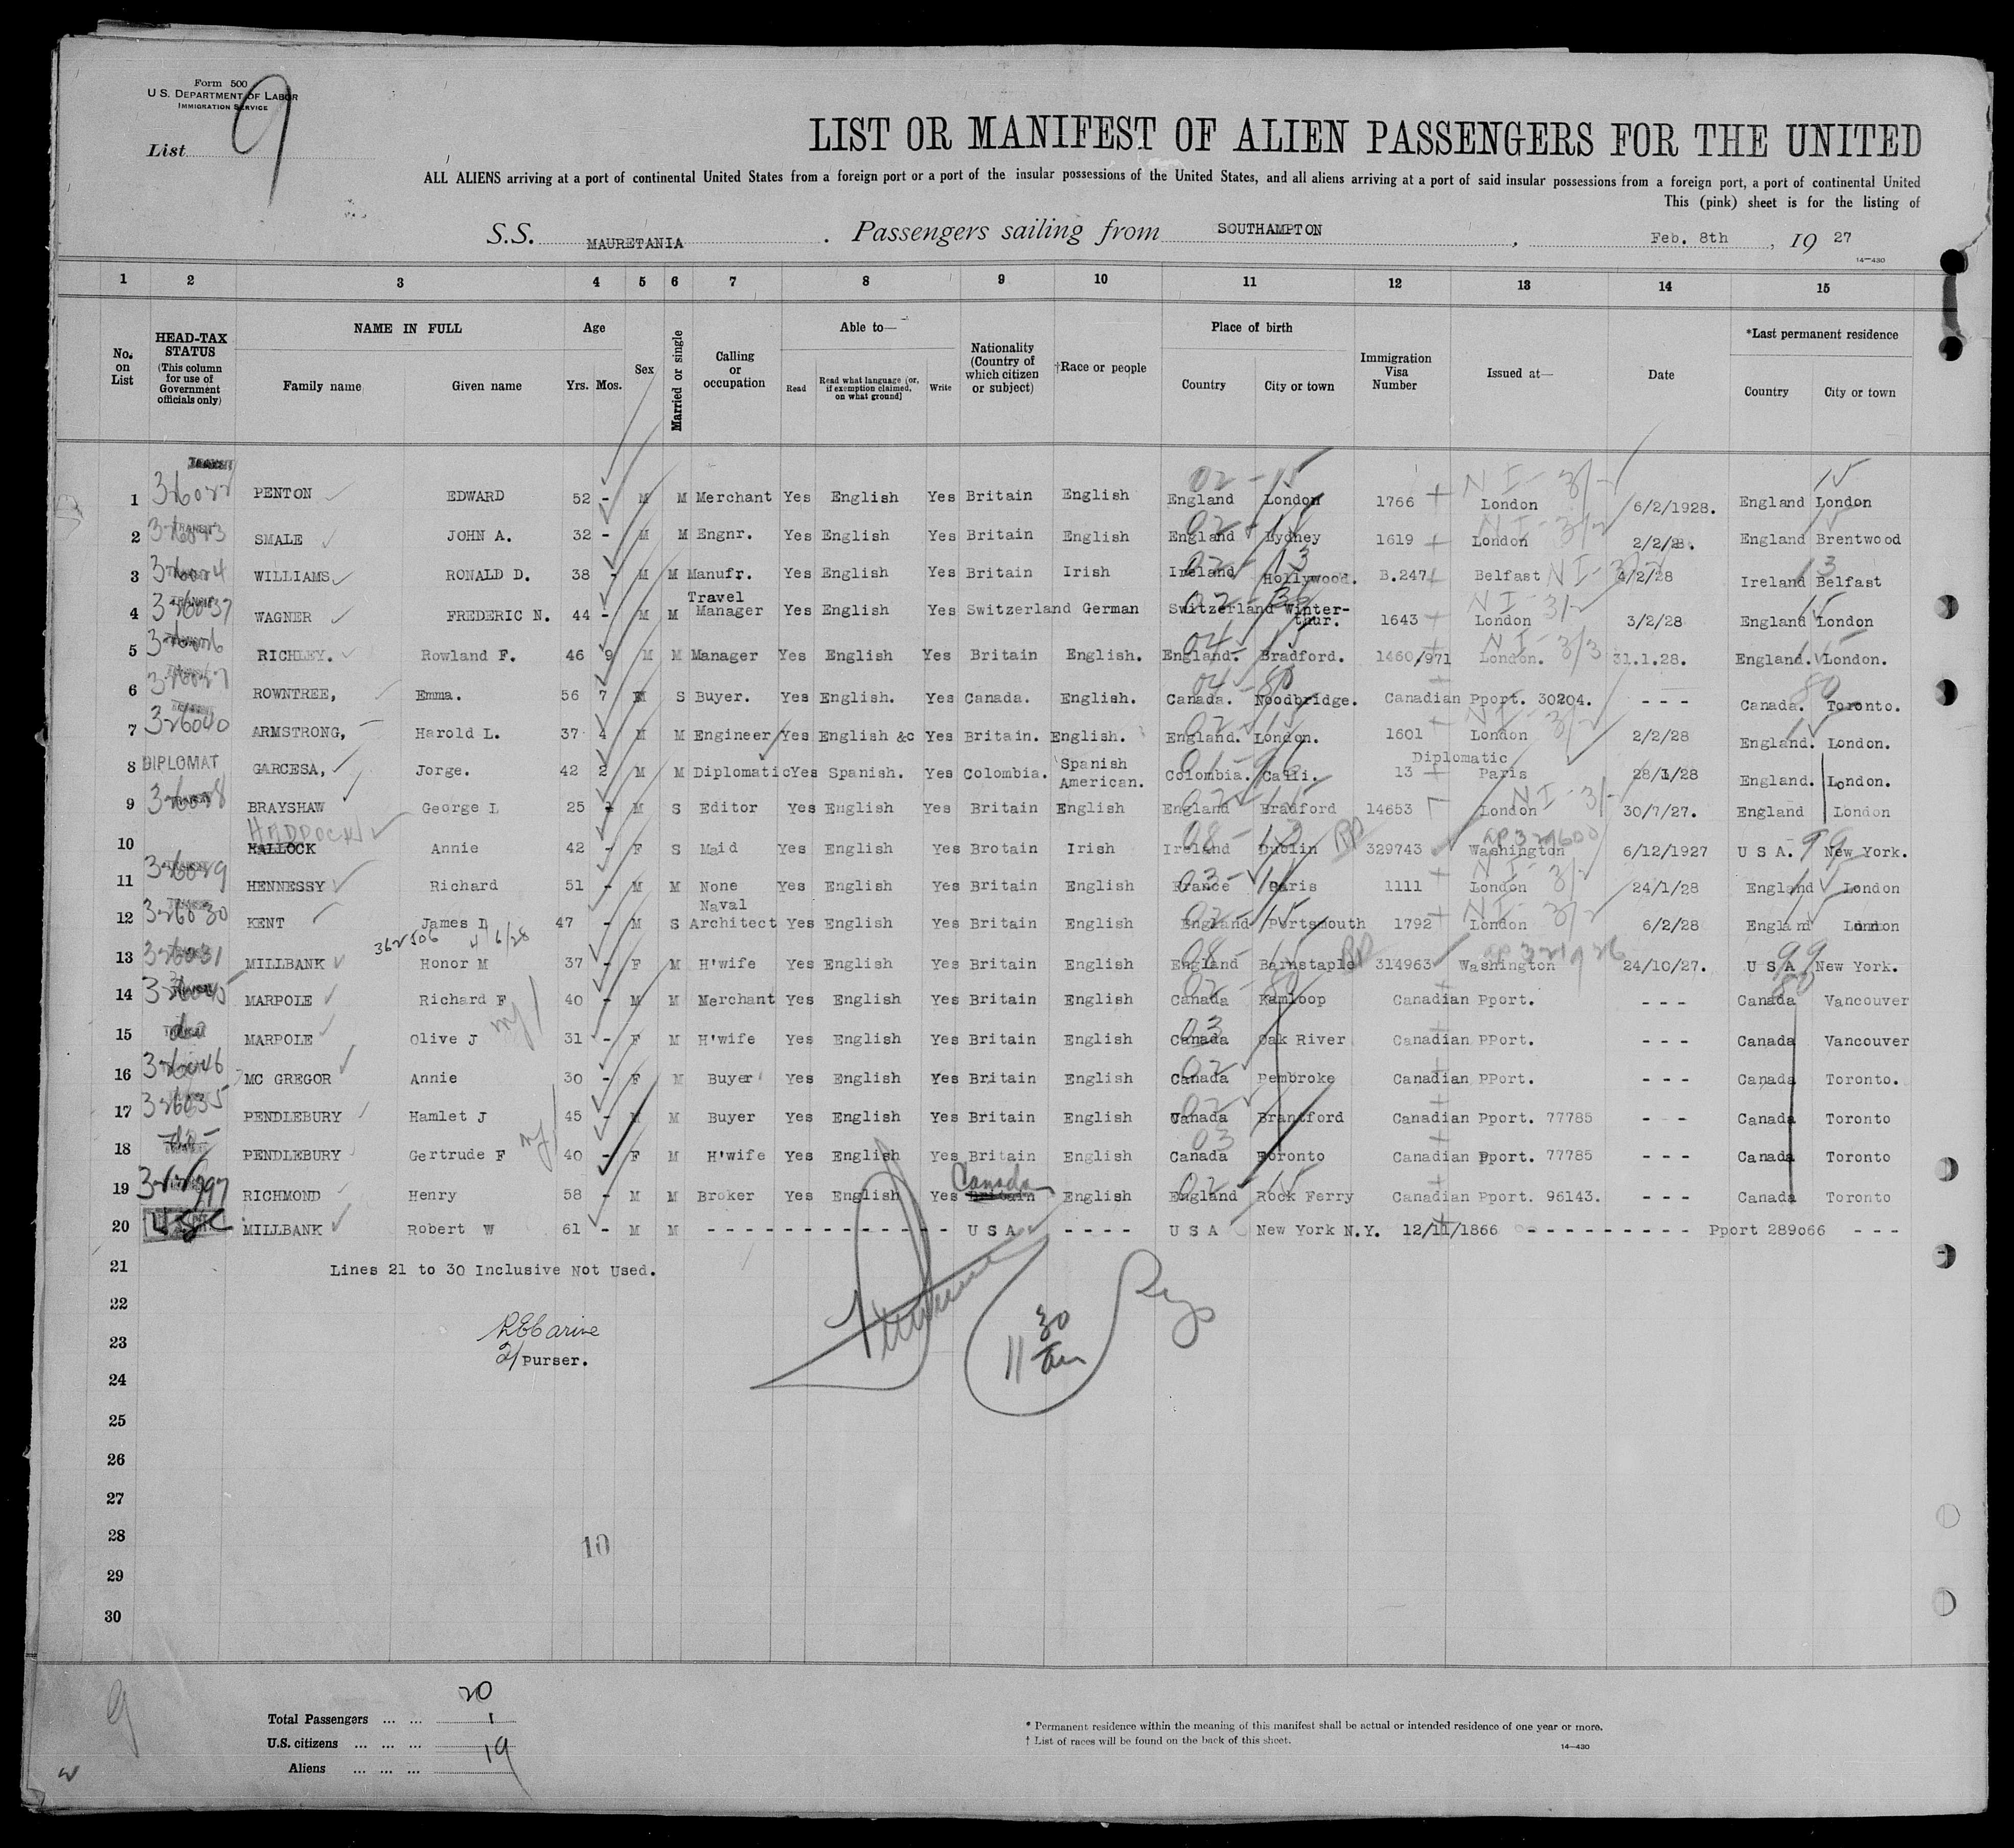 Form 500
U. S. DEPARTMENT OF LABOR
IMMIGRATION SERVICE
List 9
LIST OR MANIFEST OF ALIEN PASSENGERS FOR THE UNITED
ALL ALIENS arriving at a port of continental United States from a foreign port or a port of the insular possessions of the United States, and all aliens arriving at a port of said insular possessions from a foreign port, a port of continental United
This (pink) sheet is for the listing of
S.S. MAURETANIA. Passengers sailing from SOUTHAMPTON, Feb. 8th, 19 27
14—430
1 2 3 4 5 6 7 8 9 10 11 12 13 14 15
No. on List
HEAD-TAX STATUS (This column for use of Government officials only)
NAME IN FULL
Family name Given name
Age
Yrs. Mos.
Sex
Married or single
Calling or occupation
Able to—
Read Read what language [or, if exemption claimed, on what ground] Write
Nationality (Country of which citizen or subject)
†Race or people
Place of birth
Country City or town
Immigration Visa Number
Issued at—
Date
*Last permanent residence
Country City or town
1 PENTON EDWARD 52 - M M Merchant Yes English Yes Britain English England London 1766 London 6/2/1928. England London
2 SMALE JOHN A. 32 - M M Engnr. Yes English Yes Britain English England Lydney 1619 London 2/2/28. England Brentwood
3 WILLIAMS RONALD D. 38 - M M Manufr. Yes English Yes Britain Irish Ireland Hollywood. B.247 Belfast 4/2/28 Ireland Belfast
4 WAGNER FREDERIC N. 44 - M M Travel Manager Yes English Yes Switzerland German Switzerland Winter-thur. 1643 London 3/2/28 England London
5 RICHLEY. Rowland F. 46 9 M M Manager Yes English Yes Britain English. England. Bradford. 1460/971 London. 31.1.28. England. London.
6 ROWNTREE, Emma. 56 7 S Buyer. Yes English. Yes Canada. English. Canada. Noodbridge. Canadian Pport. 30204. - - - Canada. Toronto.
7 ARMSTRONG, Harold L. 37 4 M M Engineer Yes English &c Yes Britain. English. England. London. 1601 London 2/2/28 England. London.
8 DIPLOMAT GARCESA, Jorge. 42 2 M M Diplomatic Yes Spanish. Yes Colombia. Spanish American. Colombia. Calli. Diplomatic 13 Paris 28/1/28 England. London.
9 BRAYSHAW George L 25 M S Editor Yes English Yes Britain English England Bradford 14653 London 30/7/27. England London
HADDOCK
10 HALLOCK Annie 42 - F S Maid Yes English Yes Brotain Irish Ireland Dublin 329743 Washington 6/12/1927 U S A. New York.
11 HENNESSY Richard 51 - M M None Yes English Yes Britain English France Paris 1111 London 24/1/28 England London
12 KENT James D 47 - M S Naval Architect Yes English Yes Britain English England Portsmouth 1792 London 6/2/28 England London
362506 4/6/28
13 MILLBANK Honor M 37 - F M H'wife Yes English Yes Britain English England Barnstaple 314963 Washington 24/10/27. U S A New York.
14 MARPOLE Richard F 40 - M M Merchant Yes English Yes Britain English Canada Kamloop Canadian Pport. - - - Canada Vancouver
15 MARPOLE Olive J 31 - F M H'wife Yes English Yes Britain English Canada Oak River Canadian PPort. - - - Canada Vancouver
16 MC GREGOR Annie 30 - F M Buyer Yes English Yes Britain English Canada Pembroke Canadian PPort. - - - Canada Toronto.
17 PENDLEBURY Hamlet J 45 - M M Buyer Yes English Yes Britain English Canada Brantford Canadian Pport. 77785 - - - Canada Toronto
18 PENDLEBURY Gertrude F 40 - F M H'wife Yes English Yes Britain English Canada Toronto Canadian Pport. 77785 - - - Canada Toronto
Canada
19 RICHMOND Henry 58 - M M Broker Yes English Yes Britain English England Rock Ferry Canadian Pport. 96143. - - - Canada Toronto
20 USC MILLBANK Robert W 61 - M M - - - - U S A - - - - U S A New York N.Y. 12/11/1866 - - - - Pport 289066 - - -
21 Lines 21 to 30 Inclusive Not Used.
22
23
2/ Purser.
11 30 am
24
25
26
27
28
10
29
30
9
Total Passengers ... ... 20
U.S. citizens ... ... ... 1
Aliens ... ... ... 19
* Permanent residence within the meaning of this manifest shall be actual or intended residence of one year or more.
† List of races will be found on the back of this sheet.
14—430